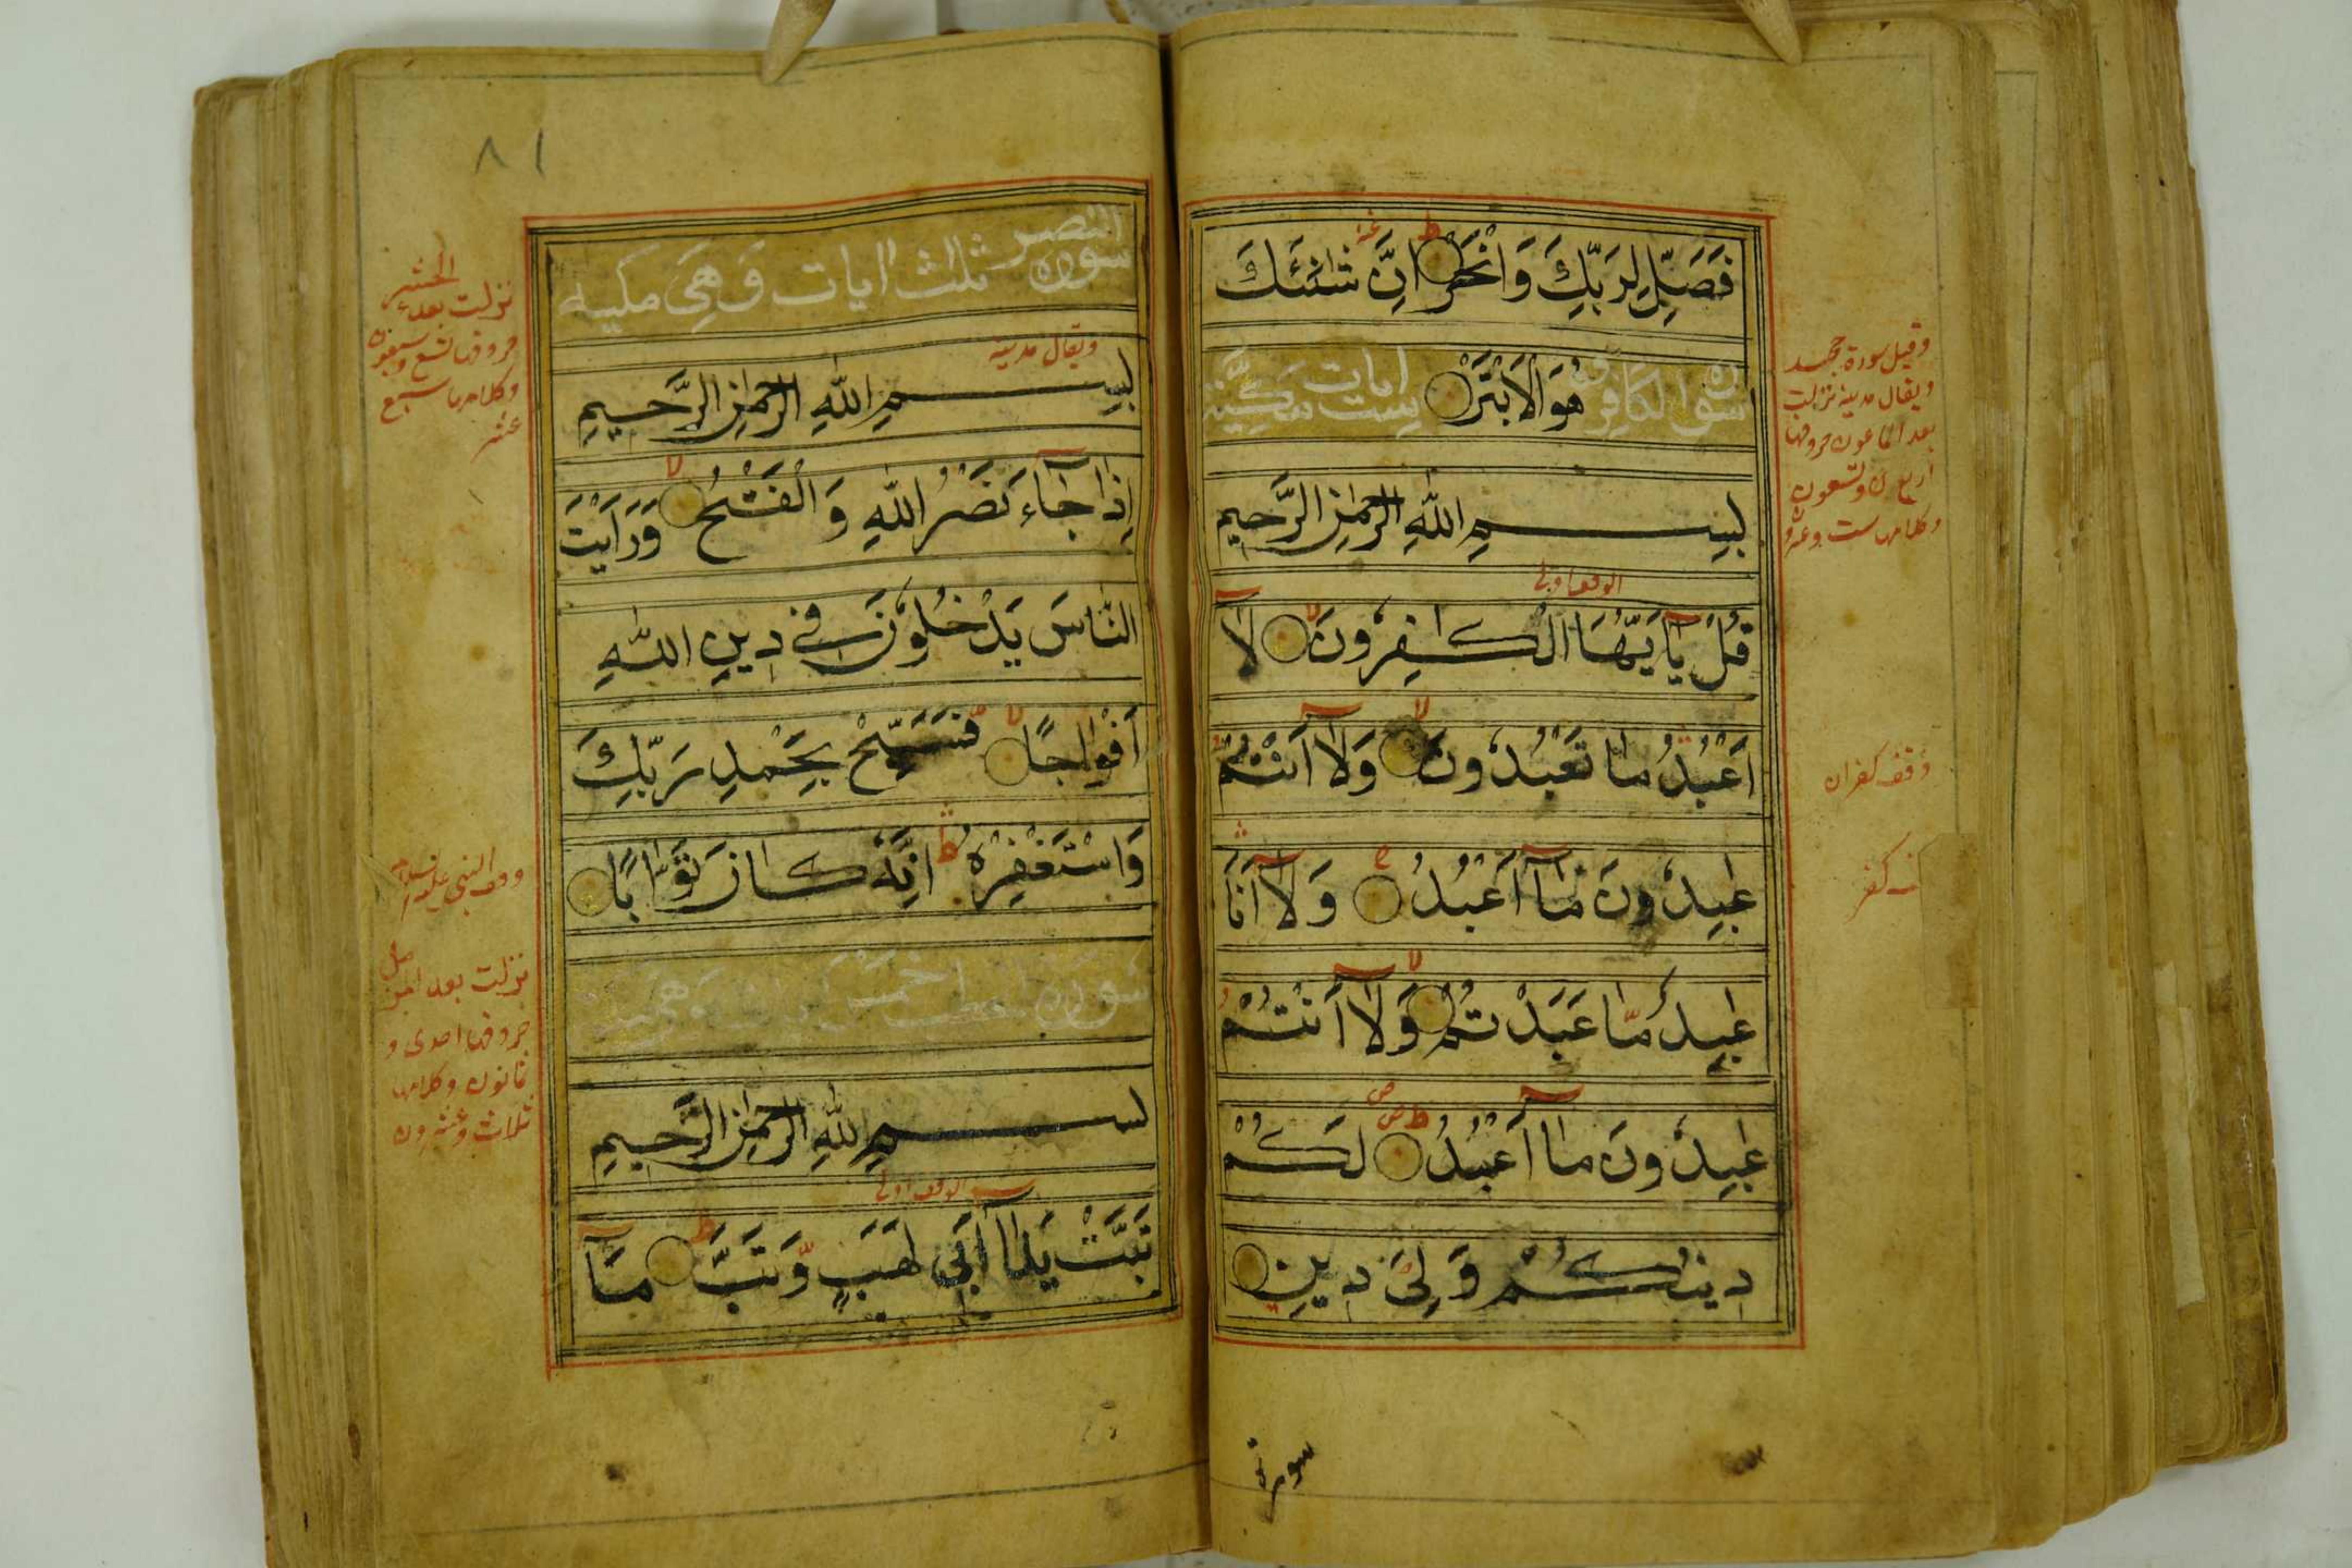 فَصَلِّ لِرَبِّكَ وَانْحَرْ اِنَّ شَانِئَكَ
هُوَ الْاَبْتَرُ سورة الكافرون ست ايات مكية
بِسْمِ اللّٰهِ الرَّحْمٰنِ الرَّحِيْمِ
الوقف اولى
قُلْ يٰٓاَيُّهَا الْكٰفِرُوْنَ لا لَآ
اَعْبُدُ مَا تَعْبُدُوْنَ لا وَلَآ اَنْتُمْ
عٰبِدُوْنَ مَآ اَعْبُدُ ج وَلَآ اَنَا
عٰبِدٌ مَّا عَبَدْتُّمْ لا وَلَآ اَنْتُمْ
عٰبِدُوْنَ مَآ اَعْبُدُ ط لَكُمْ
دِيْنُكُمْ وَلِيَ دِيْنِ
وقيل سورة
ويقال مدينة نزلت
بعد الماعون حروفها
اربع وتسعون
وكلامها ست وعشرون
وقف كفران
كفر
سورة
٨١
سورة النصر ثلث ايات وَهِيَ مكيه
ويقال مدينة
بِسْمِ اللّٰهِ الرَّحْمٰنِ الرَّحِيْمِ
اِذَا جَآءَ نَصْرُ اللّٰهِ وَالْفَتْحُ لا وَرَاَيْتَ
النَّاسَ يَدْخُلُوْنَ فِيْ دِيْنِ اللّٰهِ
اَفْوَاجًا لا فَسَبِّحْ بِحَمْدِ رَبِّكَ
وَاسْتَغْفِرْهُ ط اِنَّهٗ كَانَ تَوَّابًا
سورة خمس ايات وهي
بسم اللّٰهِ الرَّحْمٰنِ الرَّحِيْمِ
الوقف اولى
تَبَّتْ يَدَآ اَبِيْ لَهَبٍ وَّتَبَّ ط مَآ
نزلت بعد الحشر
حروفها تسع وسبعون
وكلامها سبع
عشر
وقف النبي عليه السلام
نزلت بعد
حروفها احدى و
ثمانون وكلامها
ثلاث وعشرون